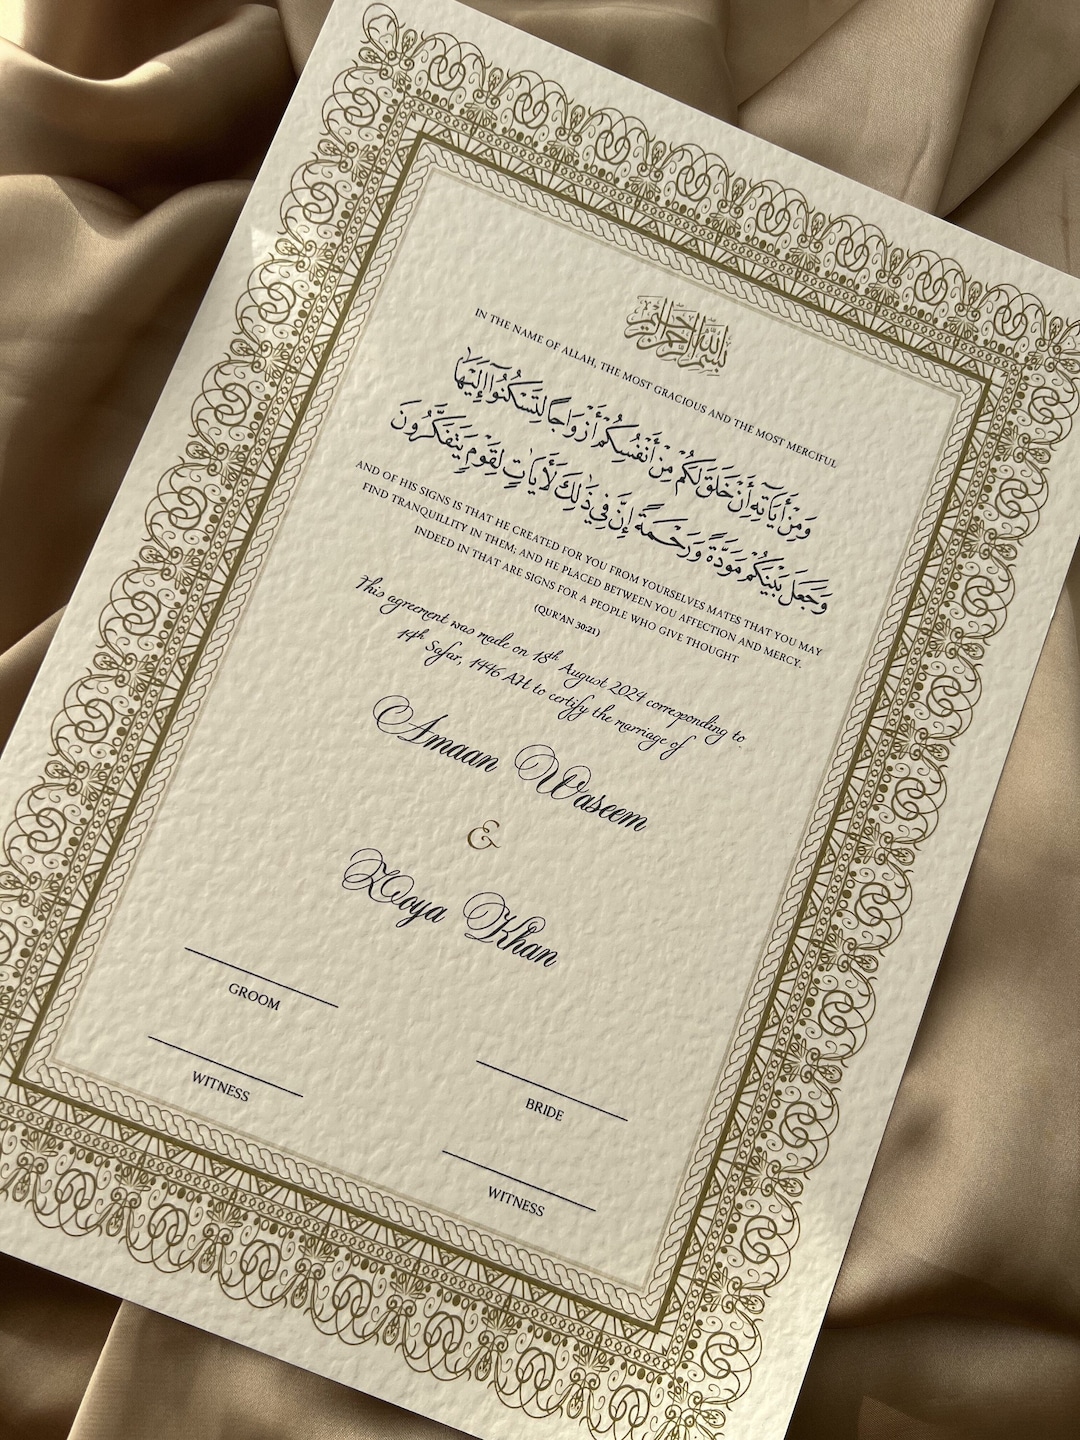 بسم الله الرحمن الرحيم
IN THE NAME OF ALLAH, THE MOST GRACIOUS AND THE MOST MERCIFUL
وَمِنْ أَيَاتِهِ أَنْ خَلَقَ لَكُم مِنْ أَنْفُسِكُمْ أَزْوَاجًا لِتَسْكُنُوا إِلَيْهَا
وَجَعَلَ بَيْنَكُمْ مَوَدَّةً وَرَحْمَةً إِنَّ فِي ذَٰلِكَ لَأَيَاتٍ لِقَوْمٍ يَتَفَكَّرُونَ
AND OF HIS SIGNS IS THAT HE CREATED FOR YOU FROM YOURSELVES MATES THAT YOU MAY
FIND TRANQUILLITY IN THEM; AND HE PLACED BETWEEN YOU AFFECTION AND MERCY.
INDEED IN THAT ARE SIGNS FOR A PEOPLE WHO GIVE THOUGHT
(QUR'AN 30:21)
This agreement was made on 18th August 2024 corresponding to
14th Safar, 1446 AH to certify the marriage of
Amaan Waseem
&
Zoya Khan
GROOM
BRIDE
WITNESS
WITNESS